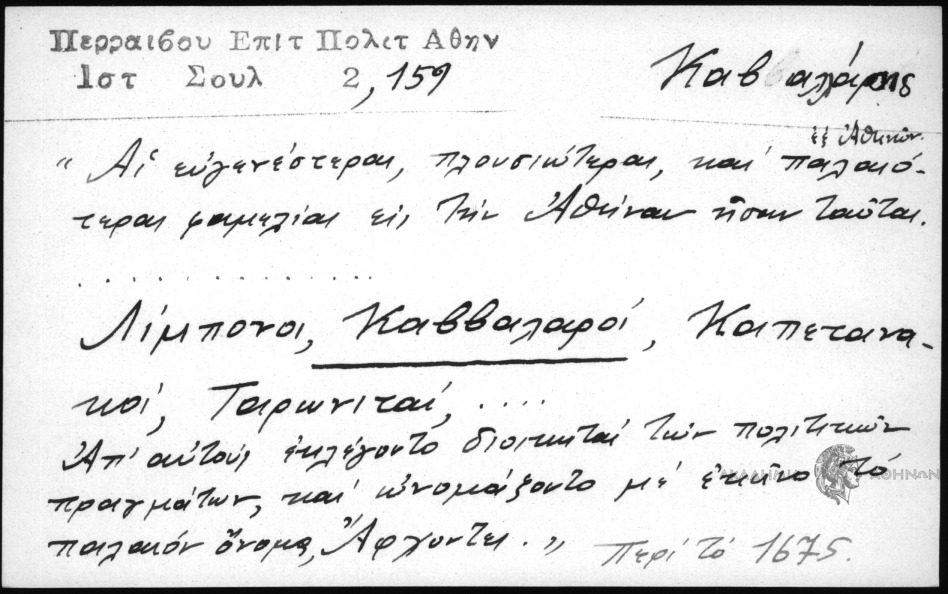 Περραιβου Επιτ Πολιτ Αθην
Ιστ Σουλ 2, 159
Καββαλάρης
ἐξ Ἀθηνῶν
“Αἱ εὐγενέστεραι, πλουσιώτεραι, καὶ παλαιό-
τεραι φαμελίαι εἰς τὴν Ἀθήναν ἦσαν ταῦται.
. . . . . . . . . . . . . .
Λίμπονοι, Καββαλαροί, Καπετανα-
κοί, Ταρωνιταί, ....
Ἀπ' αὐτοὺς ἐκλέγοντο διοικηταί τῶν πολιτικῶν
πραγμάτων, καὶ ὠνομάζοντο μὲ ἐκεῖνο τό
παλαιόν ὄνομα, Ἄρχοντες.” Περί τό 1675.
ΑΚΑΔΗΜΙΑ ΑΘΗΝΩΝ